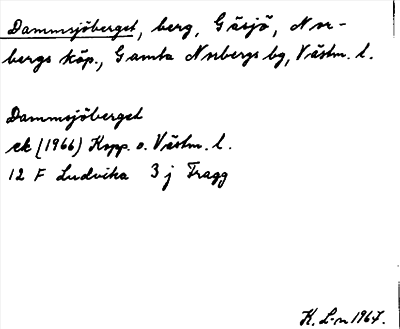 Dammsjöberget, berg, Gäsjö, Nor-
bergs köp., Gamla Norbergs bg, Västm. l.
Dammsjöberget
ek (1966) Kopp. o. Västm. l.
12 F Ludvika 3 j Fragg
K. L-n 1967.